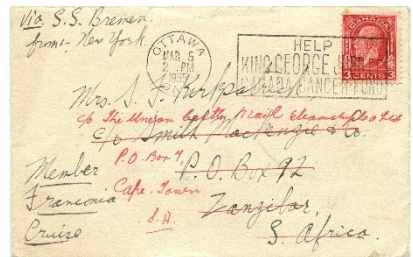 via S.S. Bremen
from:- New York.
OTTAWA
MAR 5
PM
1935
ONT
HELP
KING GEORGE
CANADA CANCER FUND
CANADA
3 CENTS 3
Mrs. S. J. Kirkpatrick
c/o The Union Castle Mail Steamship Co Ltd
c/o Smith Mackenzie & Co.
P.O. Box 7
P.O. Box 92
Cape Town
Zanzibar,
S.A.
S. Africa.
Member
Franconia
Cruise